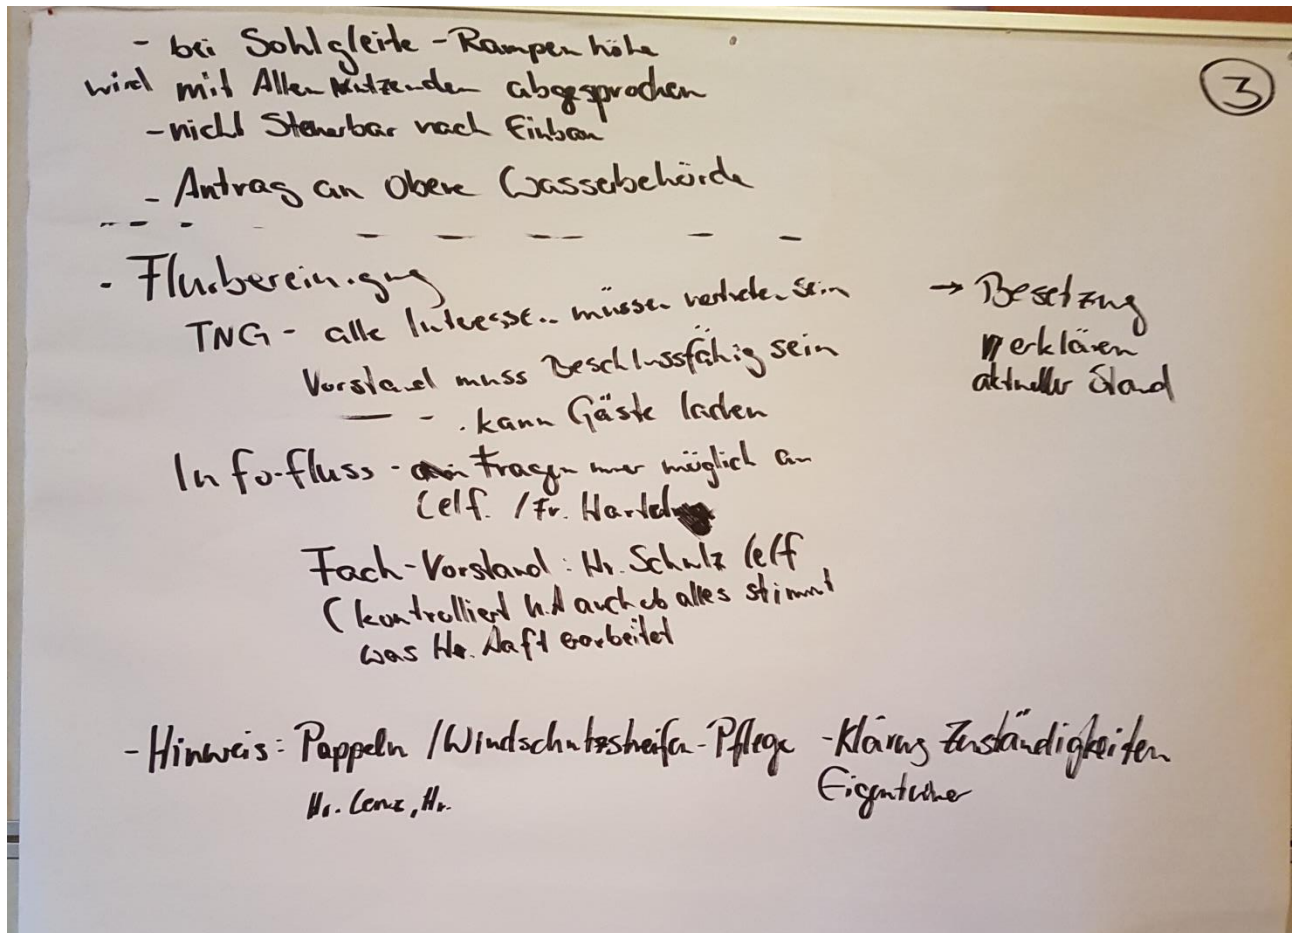 - bei Sohlgleite - Rampenhöhe
wird mit Allen Nutzenden abgesprochen
- nicht Steuerbar nach Einbau
- Antrag an Obere Wasserbehörde
3
- Flurbereinigung
TNG - alle Interesse.. müssen vertreten sein
→ Besetzung
erklären
aktueller Stand
Vorstand muss Beschlussfähig sein
. kann Gäste laden
Info-fluss - Fragen immer möglich an
Lelf. / Fr. Hartel
Fach-Vorstand: Hr. Schulz Lelf
(kontrolliert auch ob alles stimmt
was Hr. erarbeitet
- Hinweis: Pappeln / Windschutzstreifen-Pflege - Klärung Zuständigkeiten
Eigentümer
Hr. Lenz, Hr.